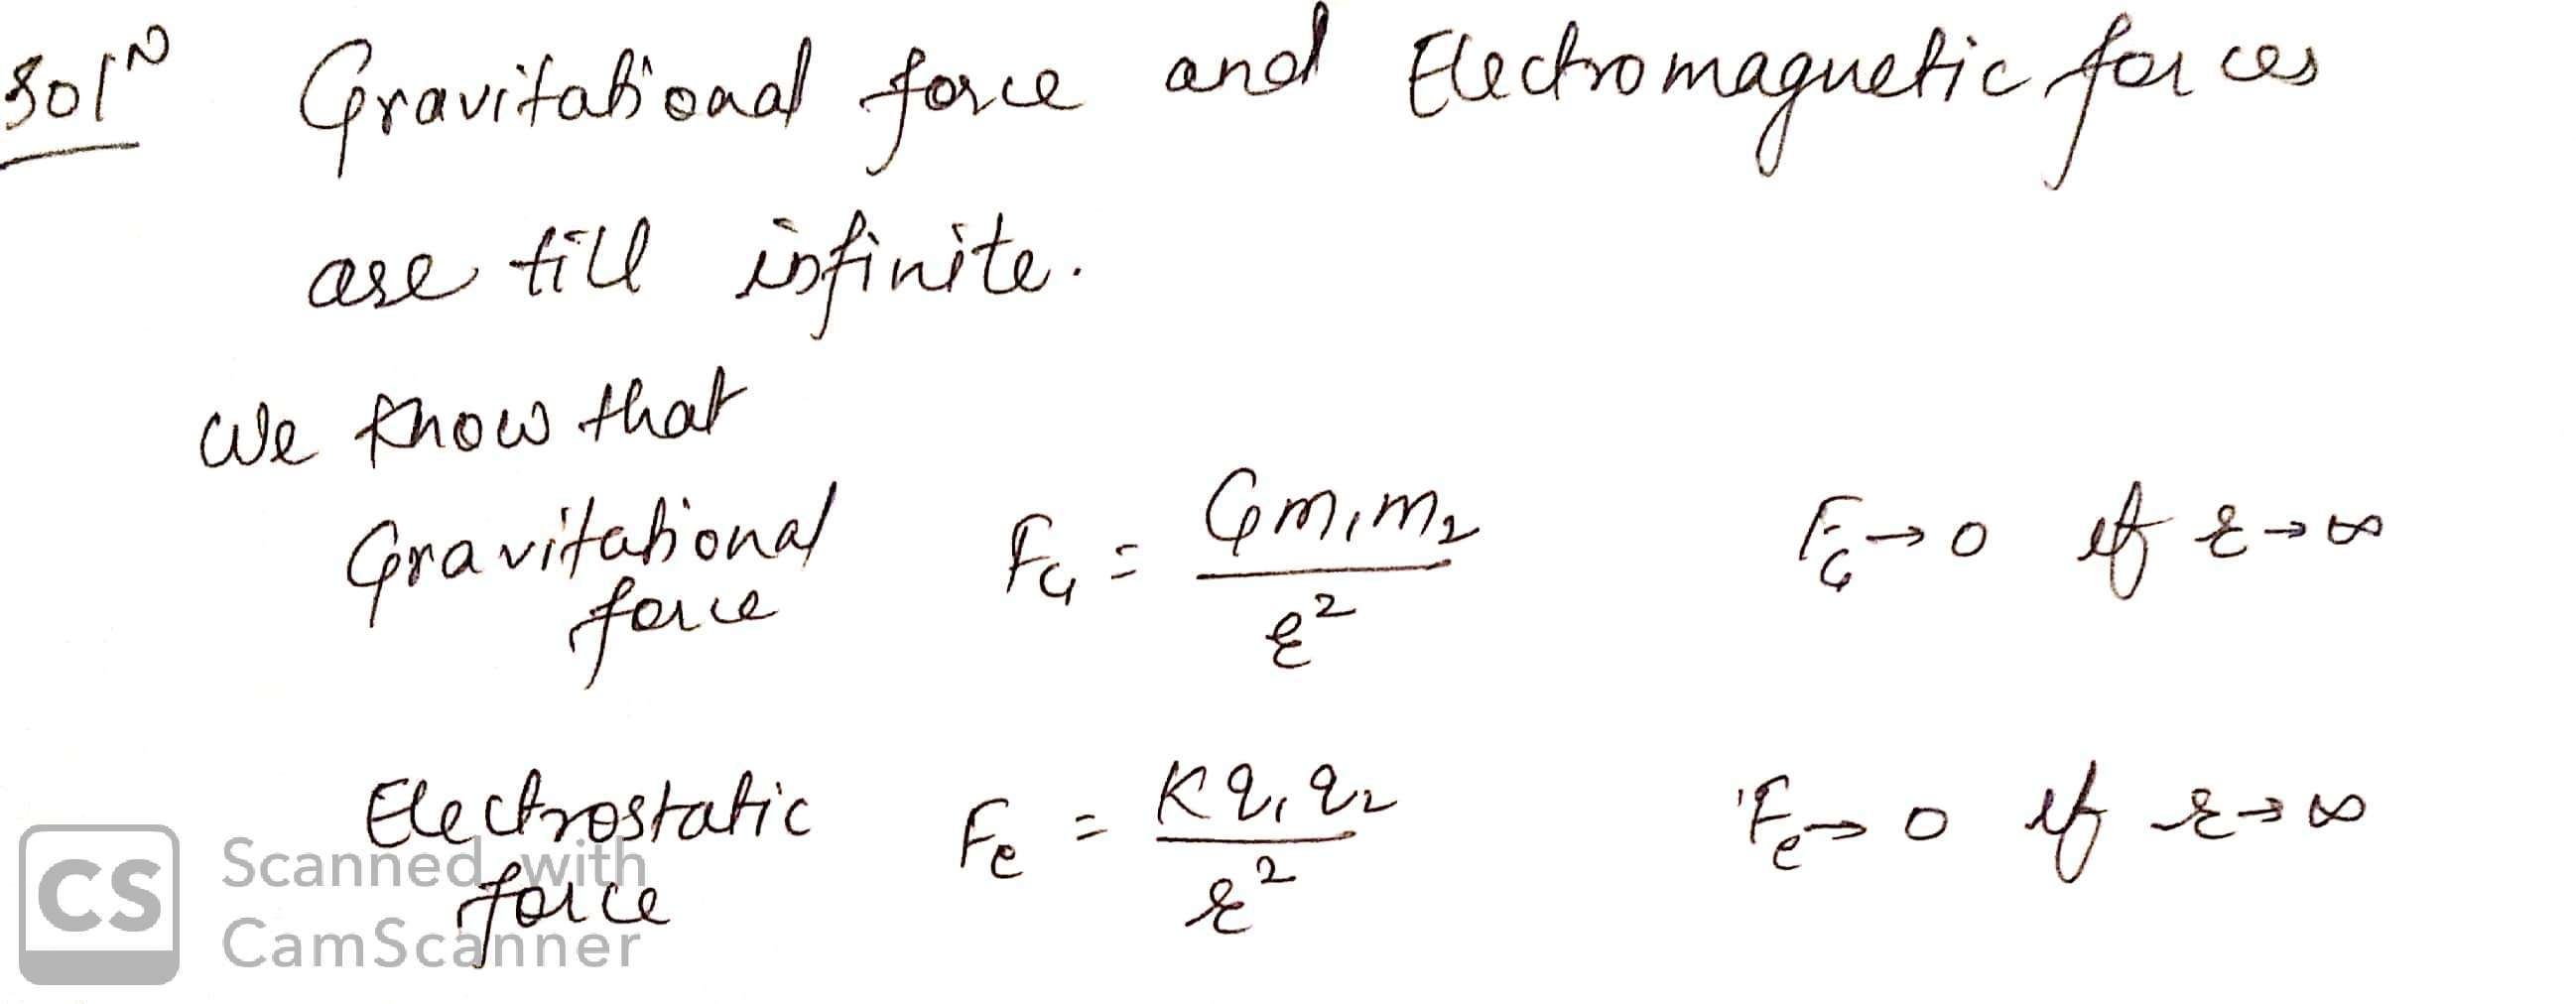 Solⁿ Gravitational force and Electromagnetic forces
are till infinite.
We know that
Gravitational force F_G = Gm₁m₂ / r² F_G → 0 if r → ∞
Electrostatic force F_e = Kq₁q₂ / r² F_e → 0 if r → ∞
CS Scanned with
CamScanner